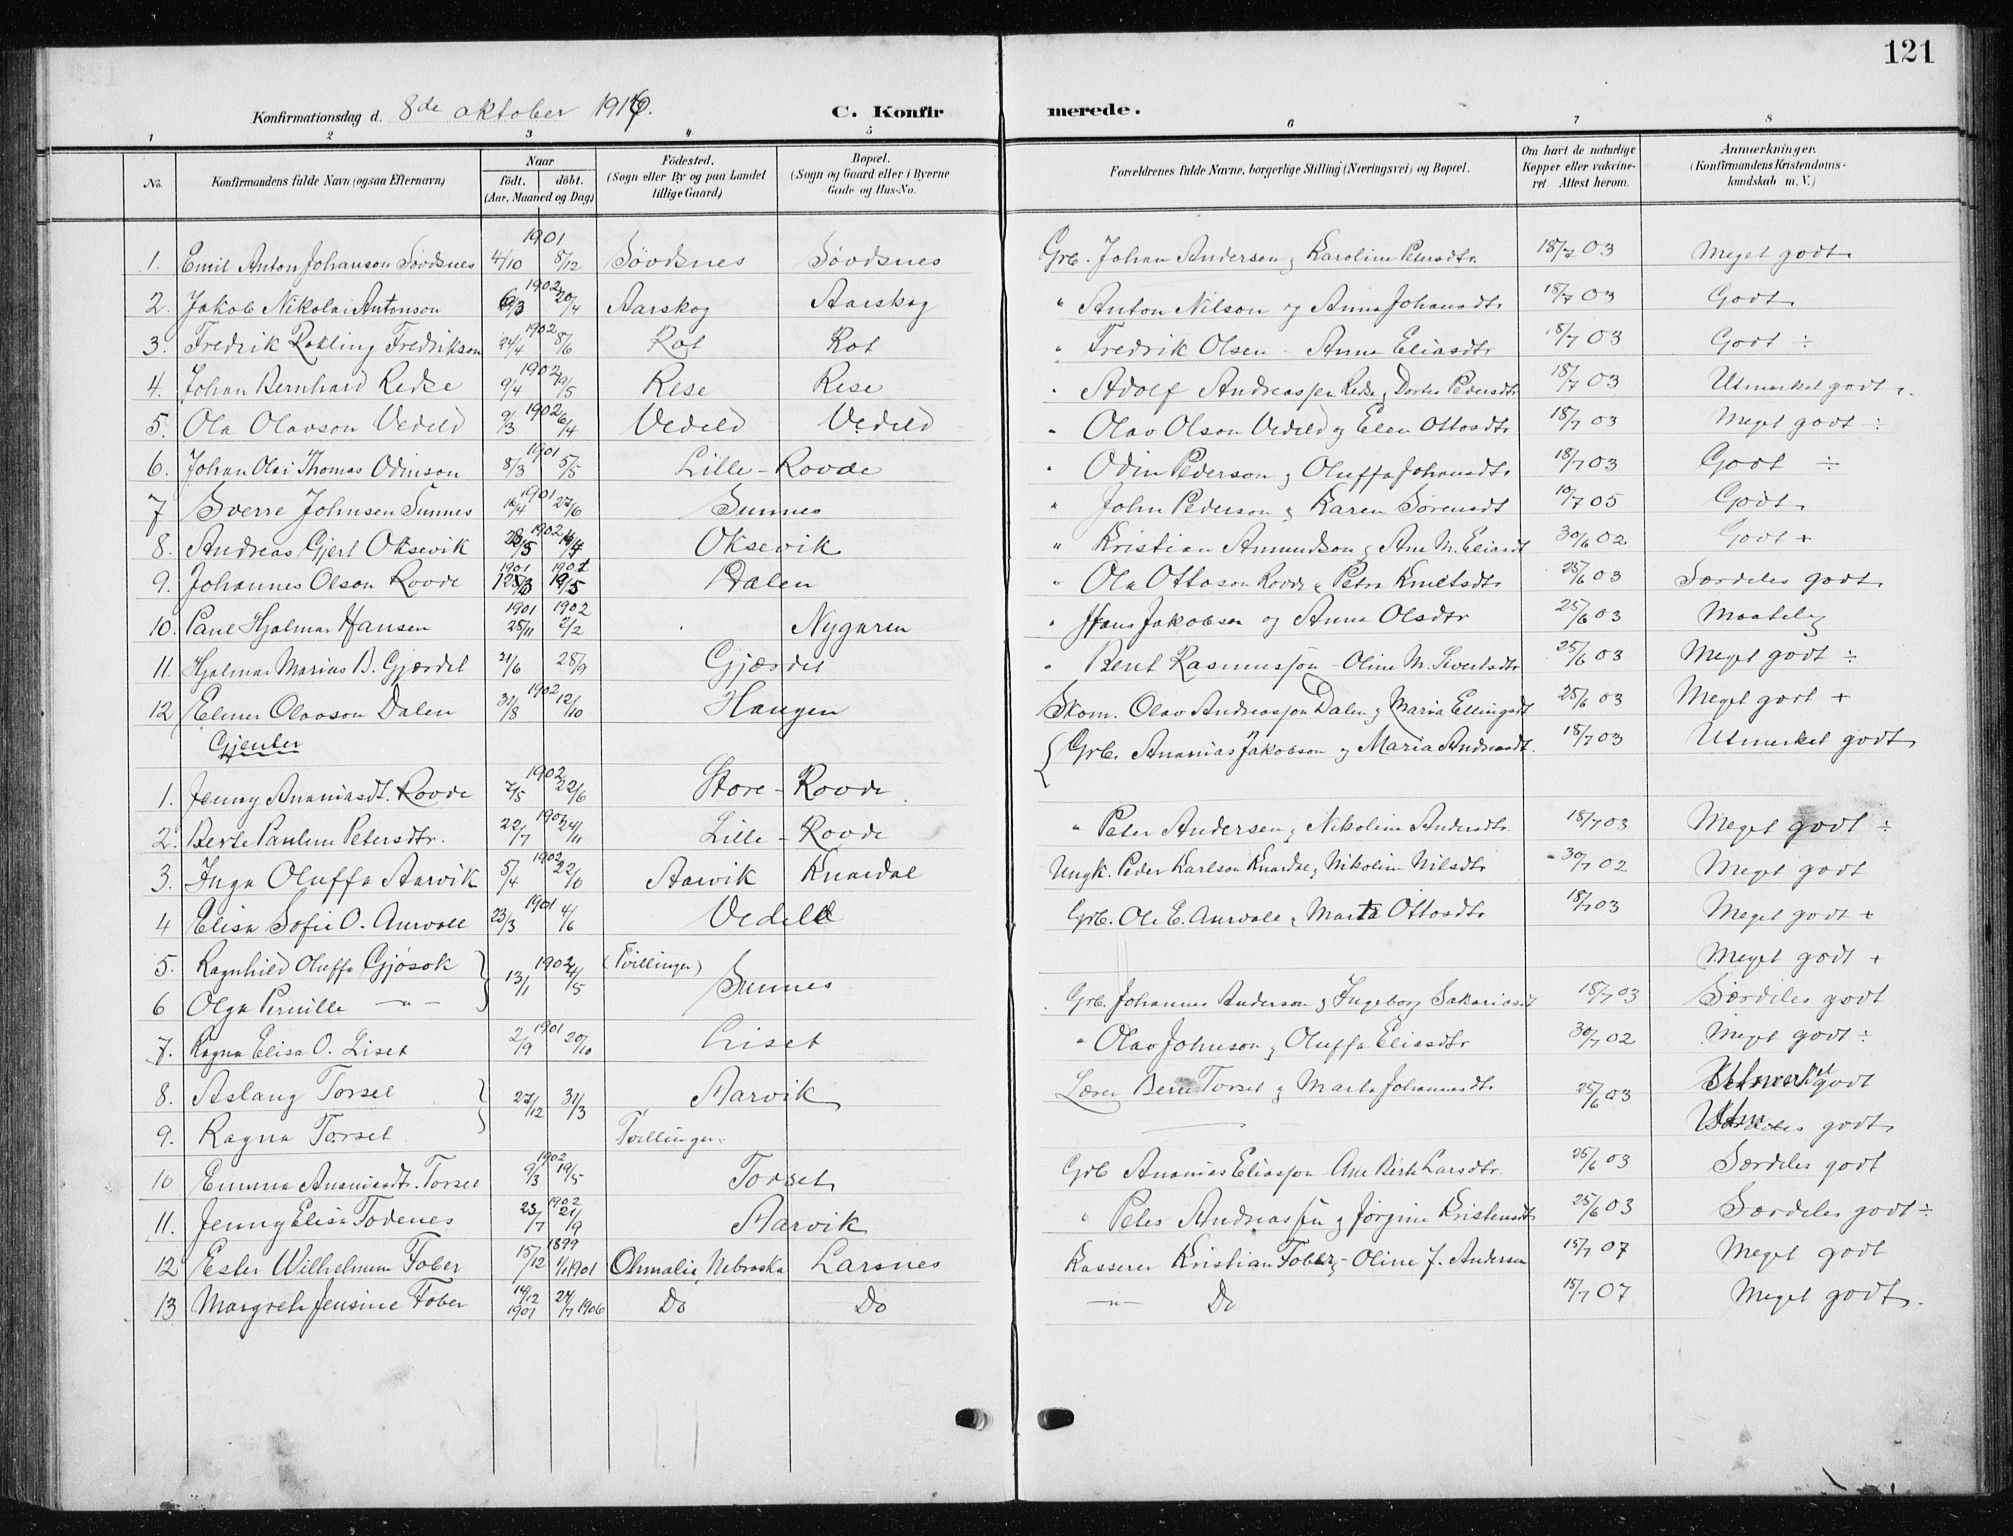 121
Konfirmationsdag d. 8de oktober 1916. C. Konfirmerede.
1 2 3 4 5 6 7 8
No. Konfirmandens fulde Navn (ogsaa Efternavn) Naar født. døbt. (Aar, Maaned og Dag) Födested. (Sogn eller By og paa Landet tillige Gaard) Bopæl. (Sogn og Gaard eller i Byerne Gade og Hus-No. Forældrenes fulde Navne, borgerlige Stilling (Næringsvei) og Bopæl. Om havt de naturlige Kopper eller vakcineret. Attest herom. Anmærkninger. (Konfirmandens Kristendomskundskab m. V.)
1. Emil Anton Johanson Sövdsnes 1901 4/10 8/12 Sövdsnes Sövdsnes Grb. Johan Andersen & Karoline Petersdtr. 18/7 03 Meget godt
2. Jakob Nikolai Antonson 1902 20/4 Aarskog Aarskog " Anton Nilson og Anna Johansdtr 18/7 03 Godt
3. Fredrik Fredrikson 1902 24/4 8/6 Rot Rot " Fredrik Olsen - Anna Eliasdtr 18/7 03 Godt ÷
4. Johan Bernhard Redse 1902 9/4 19/5 Rese Rese " Adolf Andreassen Redse & Dortea Pedersdtr 18/7 03 Utmerket godt
5. Ola Olavson Vedeld 1902 9/3 6/4 Vedeld Vedeld " Olav Olson Vedeld og Elen Ottosdtr 18/7 03 Meget godt ÷
6. Johan Olai Thomas Odinson 1901 8/3 5/5 Lille - Rovde " Odin Pederson & Oluffa Johansdtr 18/7 03 Godt ÷
7 Sverre Johnsen Sunnes 1901 16/4 27/6 Sunnes " John Pederson & Karen Sörensdt 10/7 05 Godt
8. Andreas Gjert Oksevik 1902 Oksevik " Kristian Amundson & Ane M. Eliasdt 30/6 02 Godt +
9. Johannes Olson Rovde 1901 Dalen " Ola Ottoson Rovde & Petra Knutsdtr 25/6 03 Særdeles godt
10. Paul Hjalmar Hansen 1901 1902 25/11 2/2 Nygaren " Hans Jakobsen og Anna Olsdtr 25/6 03 Maatelig
11. Hjalmar Marius B. Gjærdet 21/6 28/9 Gjærdet " Bent Rasmusson - Oline M. Sivertsdtr 25/6 03 Meget godt ÷
12 Elmer Olavson Dalen 1902 31/8 12/10 Haugen Skom. Olav Andreasson Dalen & Maria Ellingsdt 25/6 03 Meget godt +
Gjenter
1. Jenny Ananiasdt. Rovde 1902 2/5 22/6 Store - Rovde Grb. Ananias Jakobson og Maria Andreasdt. 18/7 03 Utmerket godt
2. Berte Pauline Petersdtr. 22/7 24/11 Lille - Rovde " Peter Andersen & Nikoline Andersdtr. 18/7 03 Meget godt ÷
3. Inga Oluffa Aarvik 1902 5/4 Aarvik Knardal Ungk. Peder Karlson Knardal & Nikoline Nilsdtr 30/7 02 Meget godt
4 Elisa Sofie O. Aurvoll 1901 23/3 4/6 Vedeld Grb. Ole E. Aurvoll & Marta Ottosdtr 18/7 03 Meget godt +
5. Ragnhild Oluffa Gjøsok 1902 (Tvillinger) Meget godt +
6 Olga Pernille —"— 13/1 Sunnes Grb. Johannes Anderson & Ingeborg Sakariasdt 18/7 03 Særdeles godt
7. Ragna Elisa O. Liset 1901 2/9 20/10 Liset " Olav Johnson & Oluffa Eliasdtr 30/7 02 Meget godt ÷
8. Aslaug Torset 27/12 31/3 Aarvik Lærer Bern Torset & Marta Johannesdtr 25/6 03 Utmerket godt
9. Ragna Torset Tvillinger. Utm. godt
10 Emma Ananiasdtr. Torset 1902 9/3 19/5 Torset Grb Ananias Eliasson - Ane Berte Larsdtr. 25/6 03 Særdeles godt
11. Jenny Elisa Todenes 1902 23/7 21/9 Aarvik " Peter Andreassen & Jørgine Kristensdt 25/6 03 Særdeles godt ÷
12 Ester Wilhelmine Fober 1899 15/12 1901 Nebraska Larsnes Kasserer Kristian Fober - Oline J. Andersen 15/7 07 Meget godt
13 Margrete Jensine Fober 14/12 1901 24/7 1906 Do Do —"— Do 15/7 07 Meget godt.